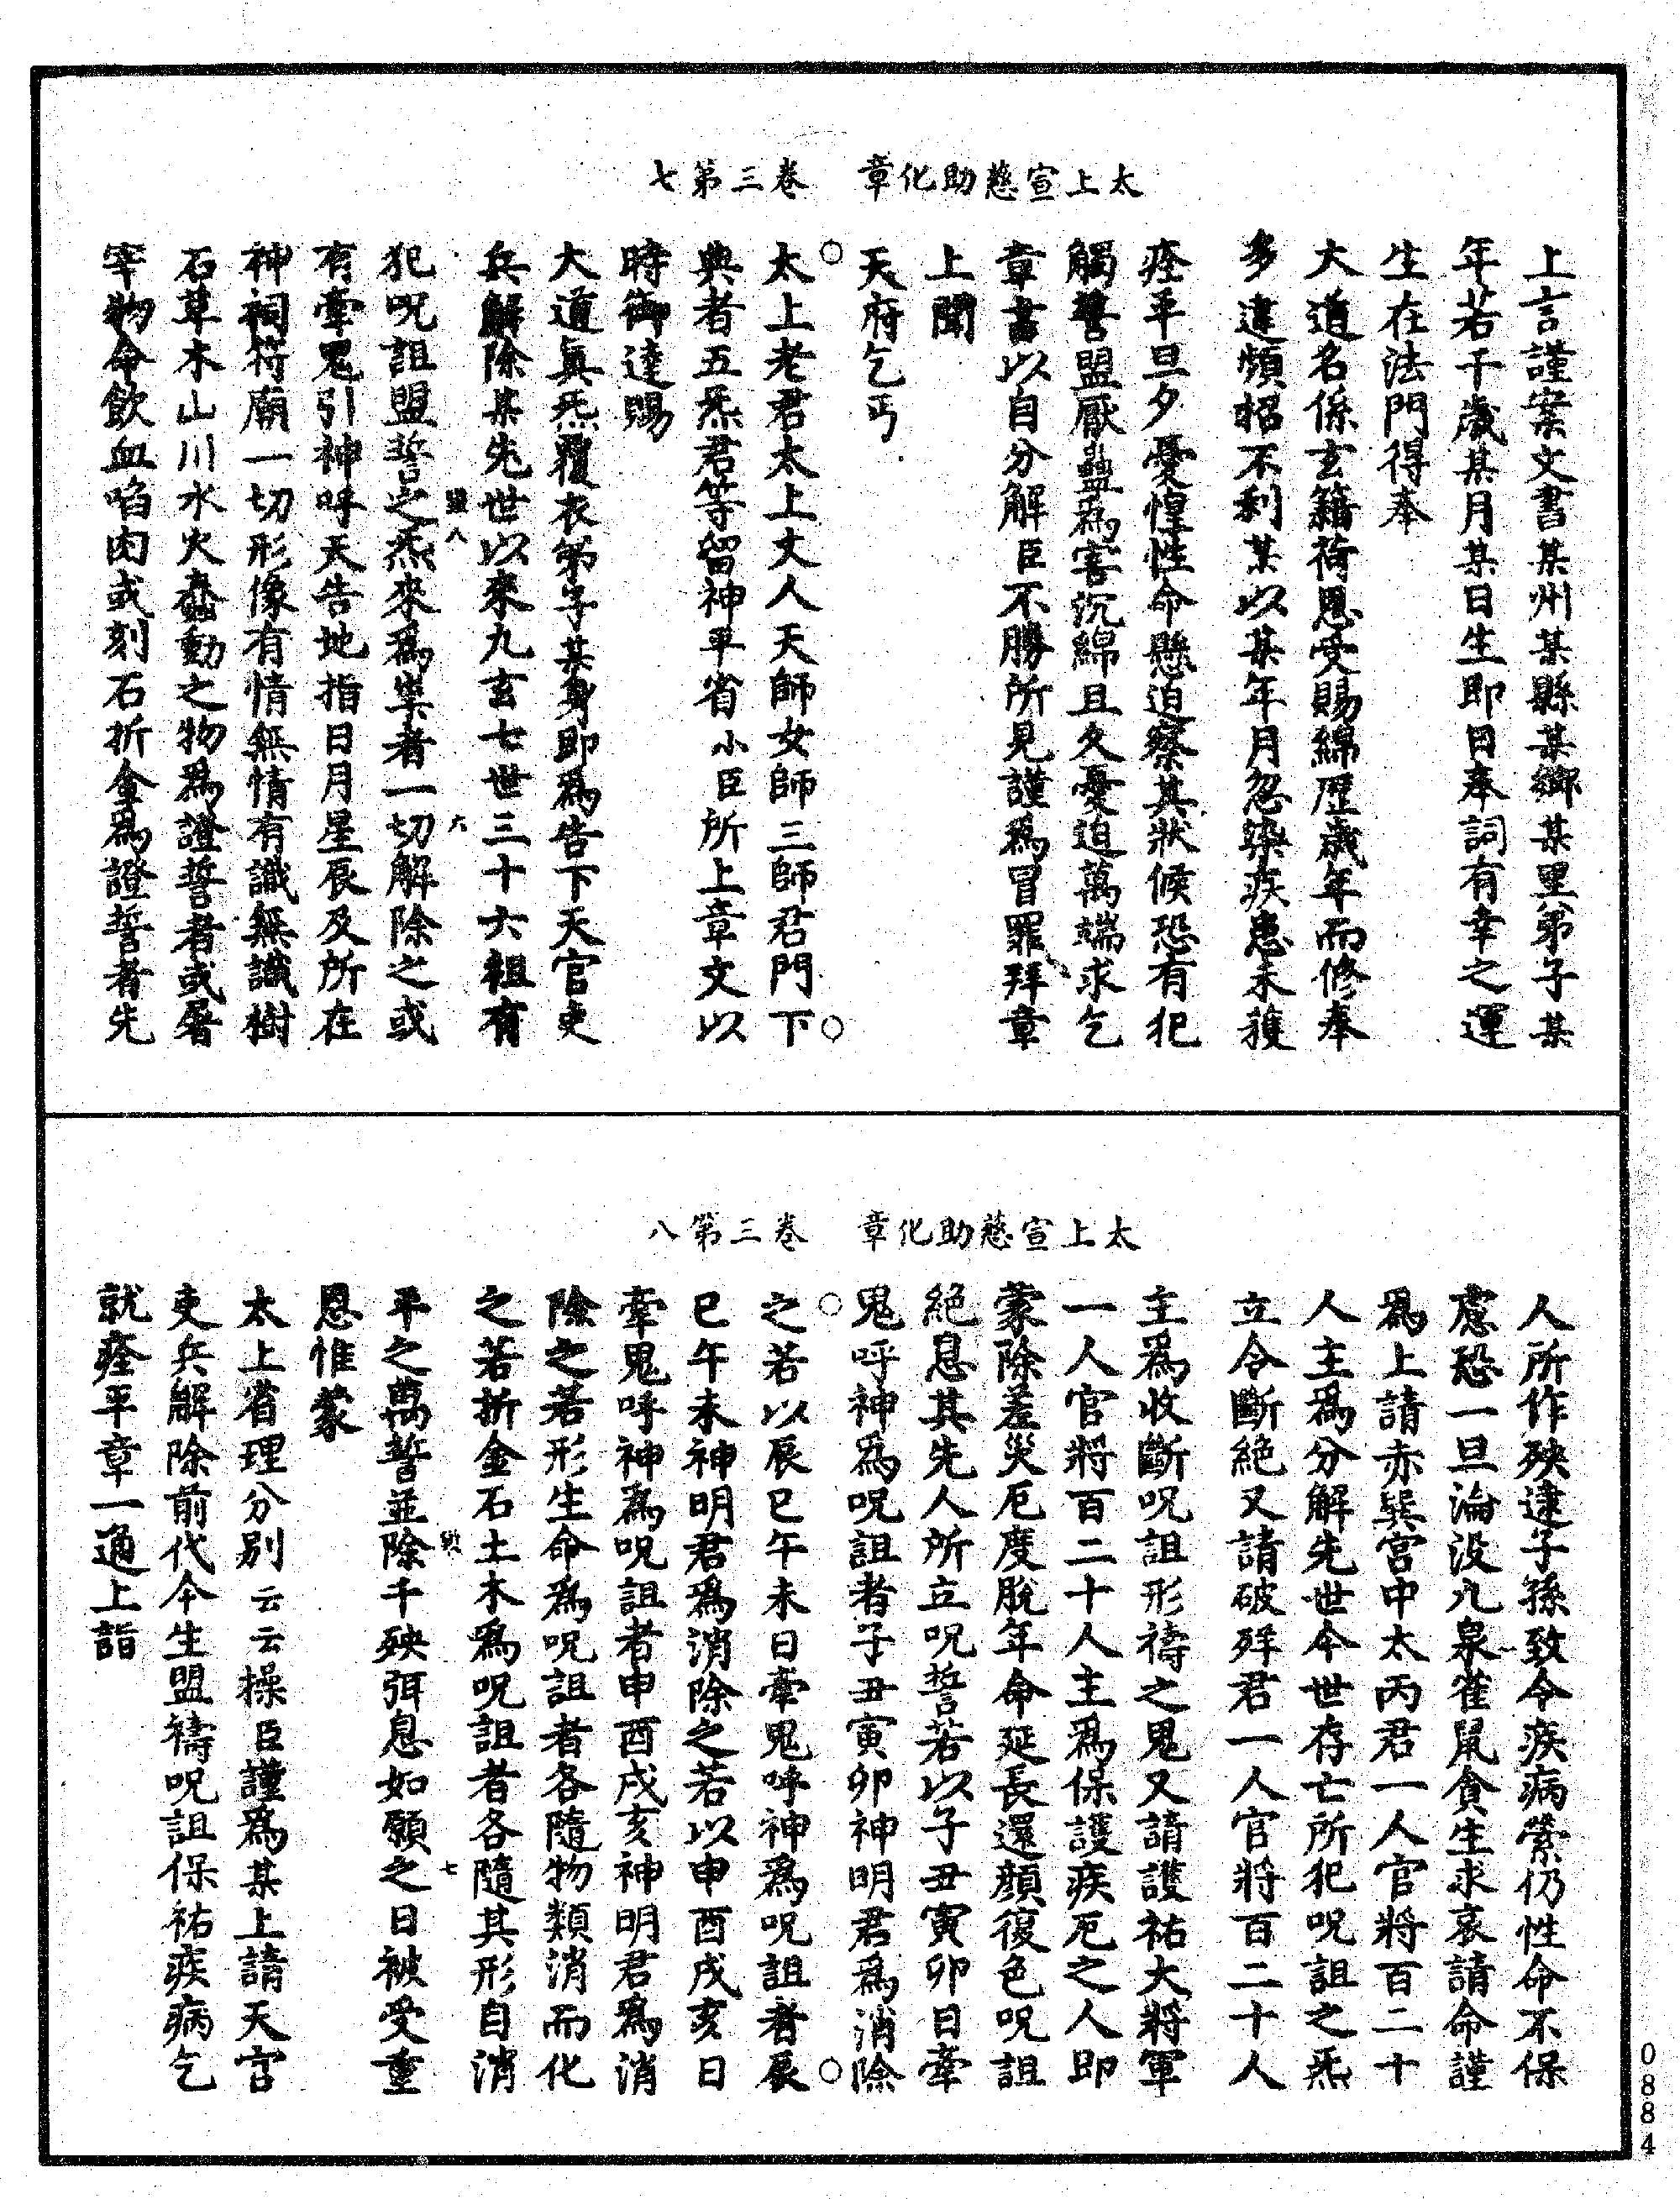 太上宣慈助化章　卷三第七
上言謹案文書某州某縣某鄉某里弟子某
年若干歲某月某日生即日奉詞有幸之運
生在法門得奉
大道名係玄籍荷恩受賜綿歷歲年而修奉
多違頻招不利某以某年月忽染疾患未獲
痊平旦夕憂惶性命懸迫察其狀候恐有犯
觸誓盟厭蠱為害沉綿且久憂迫萬端求乞
章書以自分解臣不勝所見謹為冒罪拜章
上聞
天府乞丐
太上老君太上丈人天師女師三師君門下
典者五炁君等留神平省小臣所上章文以
時御達賜
大道真炁覆衣弟子某身即為告下天官吏
兵解除某先世以來九玄七世三十六祖有
犯呪詛盟誓之炁來為祟者一切解除之或
有牽鬼引神呼天告地指日月星辰及所在
神祠符廟一切形像有情無情有識無識樹
石草木山川水火蠢動之物為證誓者或屠
宰物命飲血啗肉或刻石折金為證誓者先
太上宣慈助化章　卷三第八
人所作殃逮子孫致令疾病縈仍性命不保
慮恐一旦淪没九泉雀鼠貪生求哀請命謹
為上請赤巽宮中太丙君一人官將百二十
人主為分解先世今世存亡所犯呪詛之炁
立令斷絕又請破殃君一人官將百二十人
主為收斷呪詛形禱之鬼又請護祐大將軍
一人官將百二十人主為保護疾厄之人即
蒙除差災厄度脫年命延長還顏復色呪詛
絕息其先人所立呪誓若以子丑寅卯日牽
鬼呼神為呪詛者子丑寅卯神明君為消除
之若以辰巳午未日牽鬼呼神為呪詛者辰
巳午未神明君為消除之若以申酉戌亥日
牽鬼呼神為呪詛者申酉戌亥神明君為消
除之若形生命為呪詛者各隨物類消而化
之若折金石土木為呪詛者各隨其形自消
平之萬誓並除千殃弭息如願之日被受重
恩惟蒙
太上省理分別云云操臣謹為某上請天官
吏兵解除前代今生盟禱呪詛保祐疾病乞
就痊平章一通上詣
0884